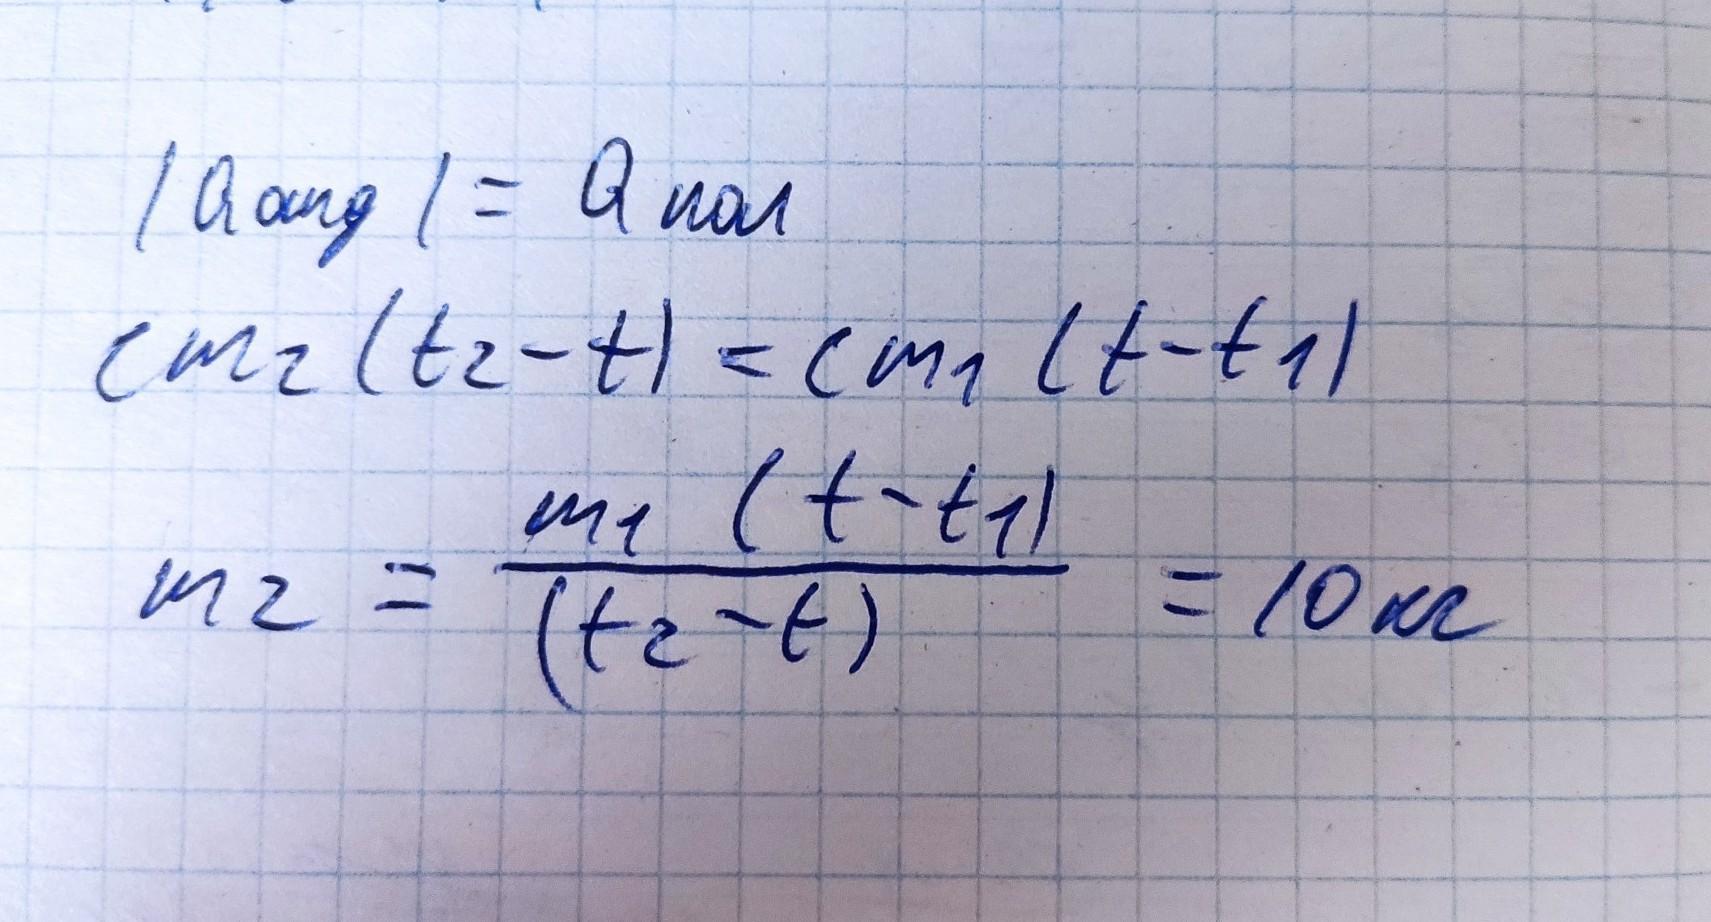 |Qотд| = Qпол
cm2(t2-t) = cm1(t-t1)
m2 = m1(t-t1)/(t2-t) = 10 кг